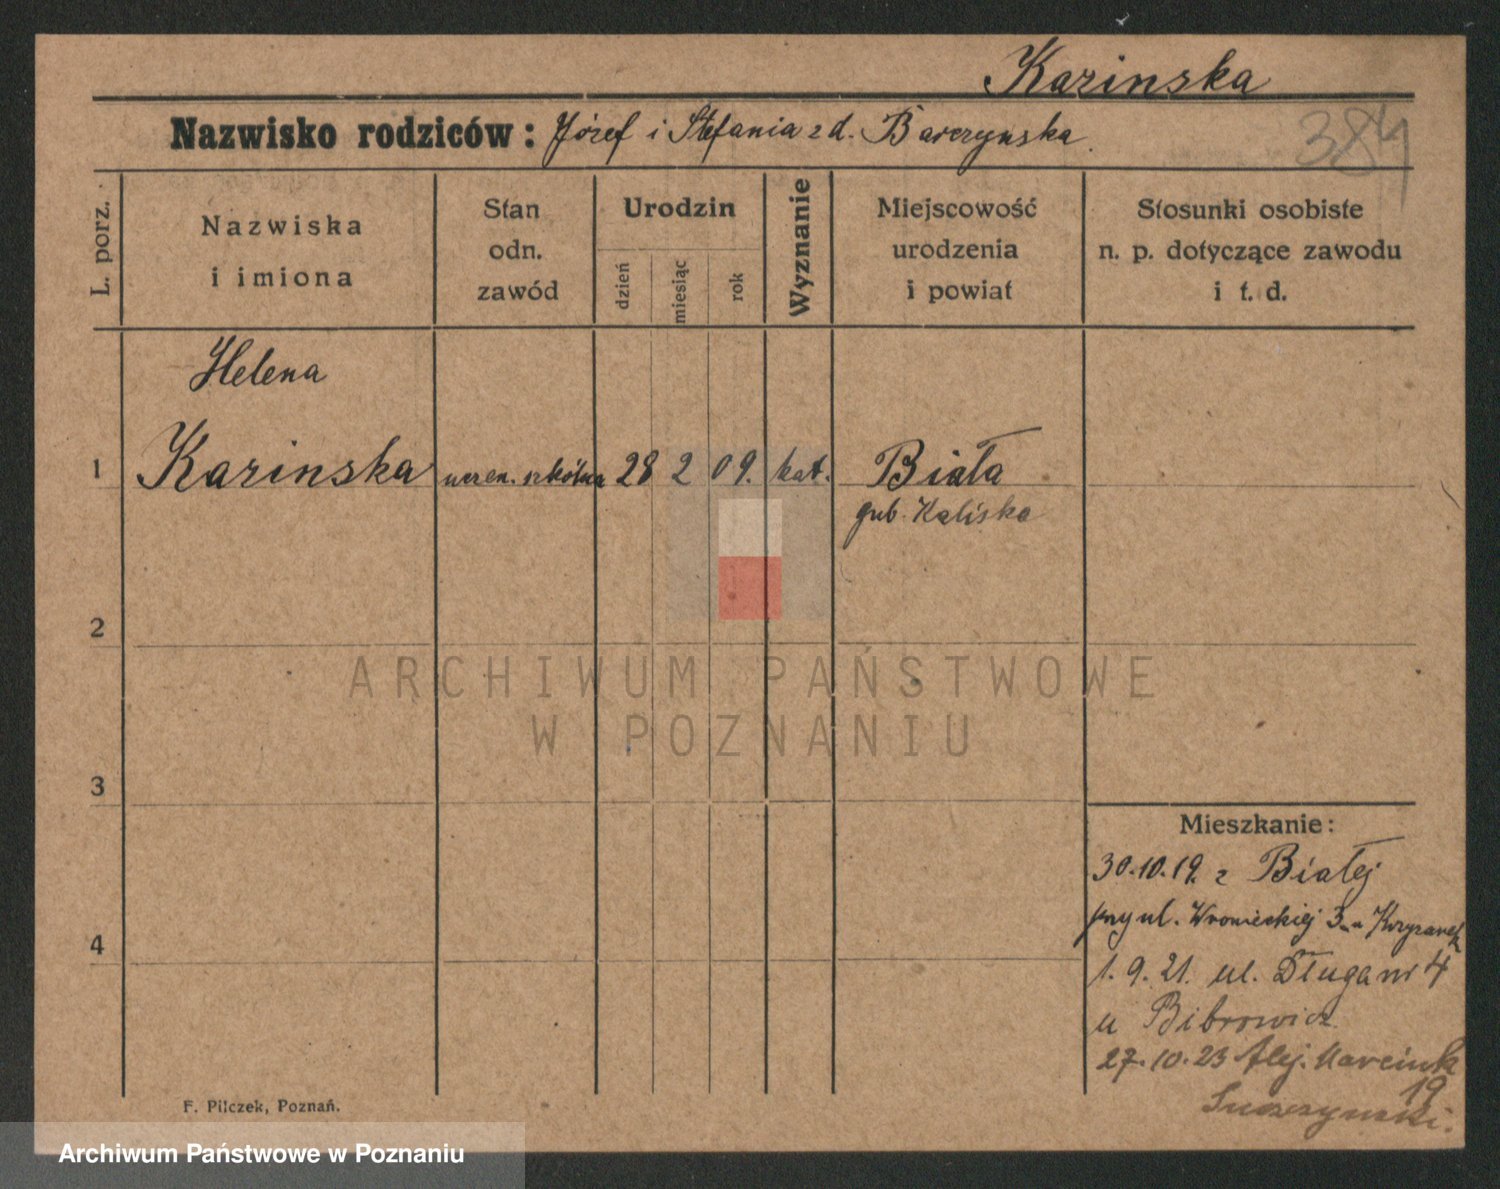 Karinska
Nazwisko rodziców: Józef i Stefania z d. Barczynska.
384
L. porz.
Nazwiska
i imiona
Stan
odn.
zawód
Urodzin
dzień
miesiąc
rok
Wyznanie
Miejscowość
urodzenia
i powiat
Stosunki osobiste
n. p. dotyczące zawodu
i t. d.
Helena
1 Karinska uczen. szkólna 28 2 09. kat. Biała
gub. Kaliska
2
ARCHIWUM PAŃSTWOWE
W POZNANIU
3
Mieszkanie:
30.10.19. z Białej
przy ul. Wronieckiej 3
4
1.9.21. ul. Długa nr 4
u Bibrowicz
27.10.23 Alej. Marcink
19
F. Pilczek, Poznań.
Archiwum Państwowe w Poznaniu